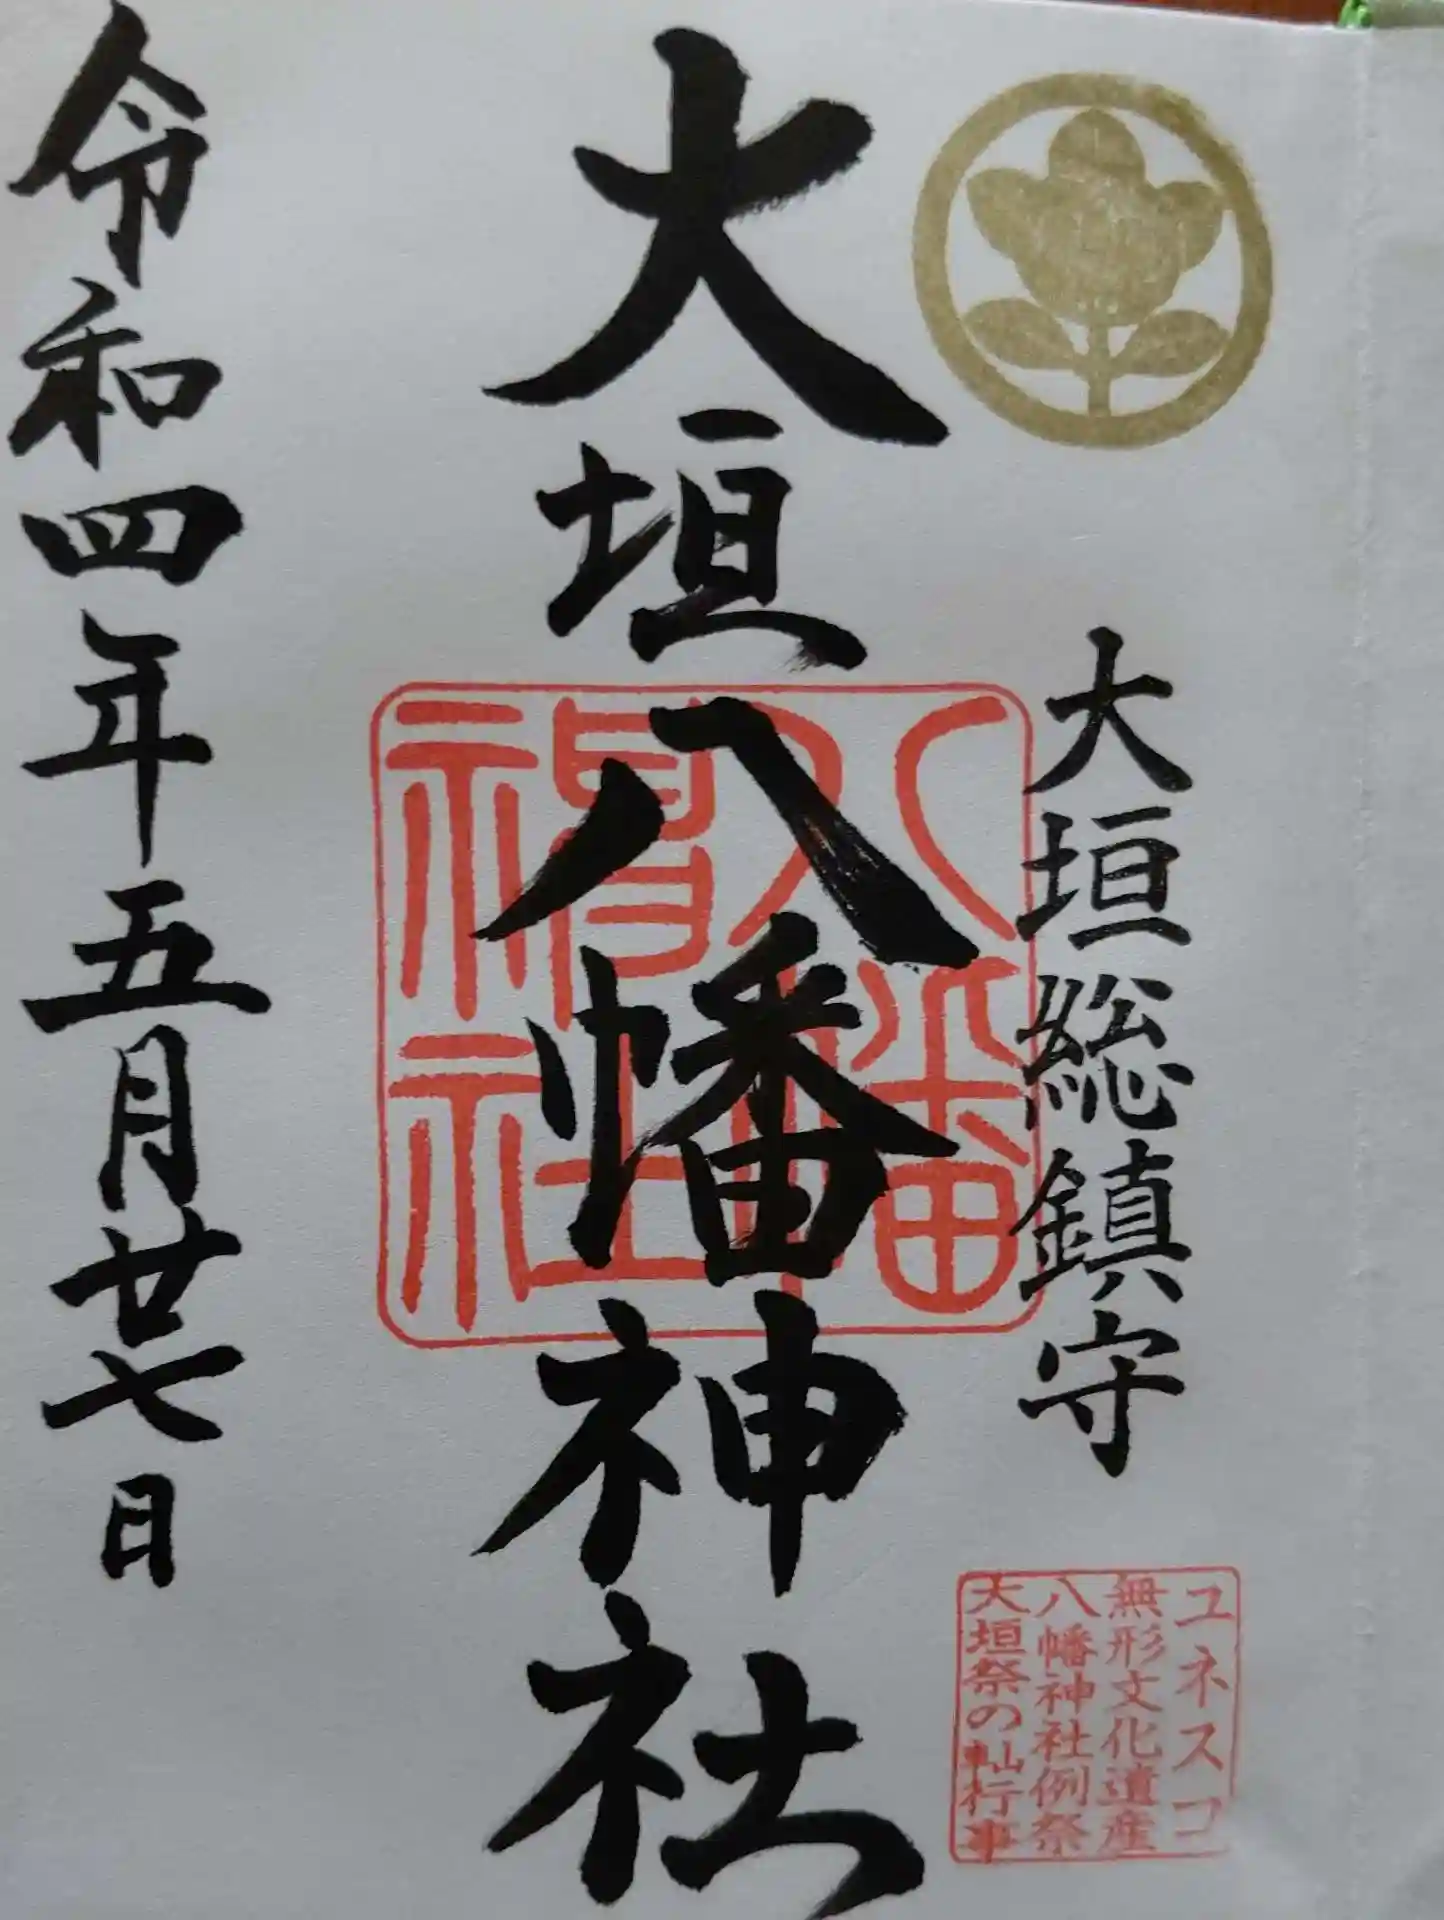 大垣総鎮守
ユネスコ
無形文化遺産
八幡神社例祭
大垣祭の軕行事
大垣八幡神社
八幡
神社
令和四年五月廿七日